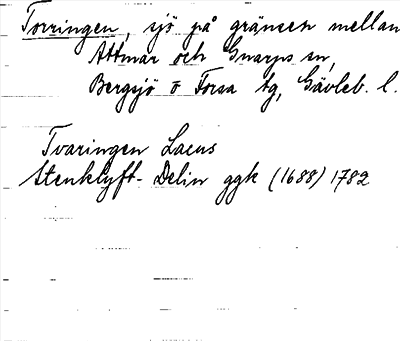 Tovringen, sjö på gränsen mellan
Attmar och Gnarps sn,
Bergsjö o Forsa tg, Gävleb. l.
Tvaringen Lacus
Stenklyft-Delin ggk (1688) 1782